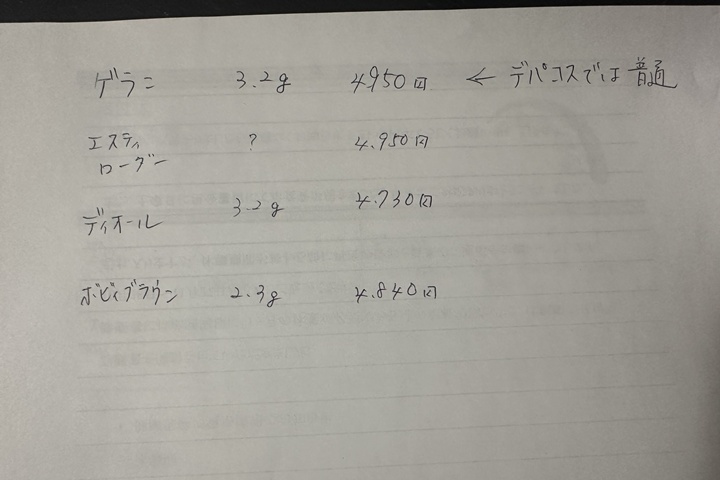 ゲラン 3.2g 4.950円 ← デパコスでは普通
エスティ ? 4.950円
ローダー
ディオール 3.2g 4.730円
ボビィブラウン 2.3g 4.840円